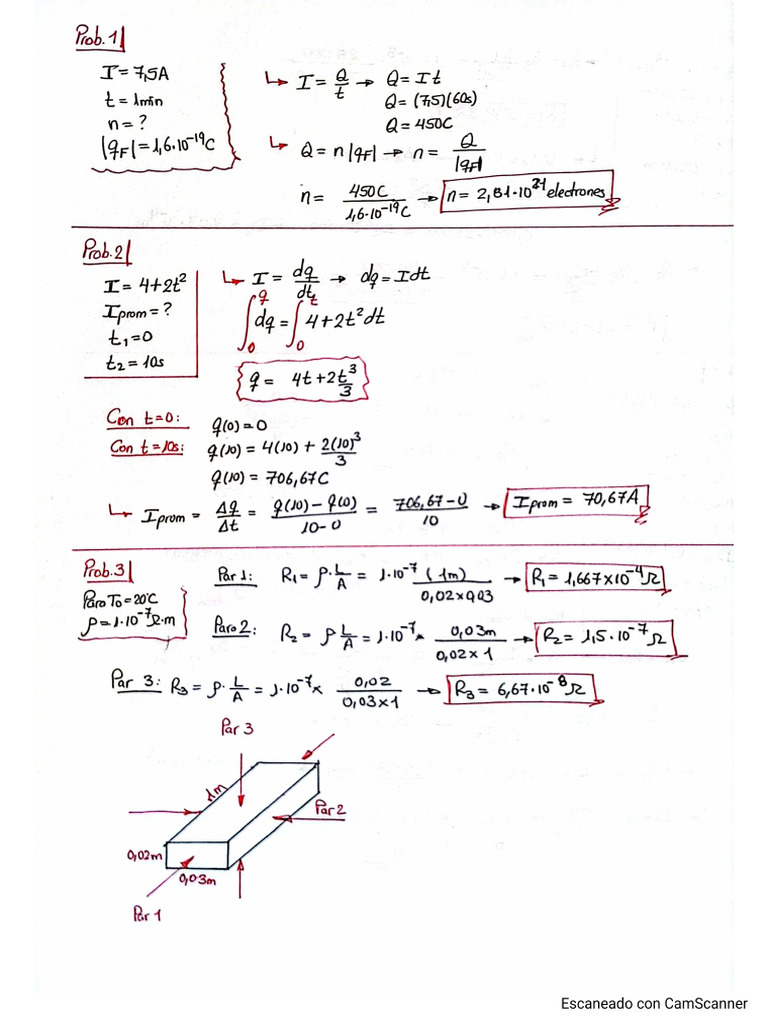 Prob. 1
I = 7,5A
t = 1min
n = ?
|qF| = 1,6·10⁻¹⁹C
↳ I = Q/t → Q = It
Q = (7,5)(60s)
Q = 450C
↳ Q = n|qF| → n = Q/|qF|
n = 450C/1,6·10⁻¹⁹C → n = 2,81·10²¹ electrones
Prob. 2
I = 4+2t²
Iprom = ?
t₁=0
t₂=10s
↳ I = dq/dt → dq = Idt
∫₀^q dq = ∫₀^t 4+2t²dt
q = 4t+2t³/3
Con t=0: q(0)=0
Con t=10s: q(10) = 4(10) + 2(10)³/3
q(10) = 706,67C
↳ Iprom = Δq/Δt = q(10)-q(0)/10-0 = 706,67-0/10 → Iprom = 70,67A
Prob. 3
Para T₀=20°C
ρ=1·10⁻⁷Ω·m
Par 1: R₁ = ρ·L/A = 1·10⁻⁷ (1m)/0,02x0,03 → R₁ = 1,667x10⁻⁴Ω
Paro 2: R₂ = ρ L/A = 1·10⁻⁷x 0,03m/0,02x1 → R₂ = 1,5·10⁻⁷Ω
Par 3: R₃ = ρ·L/A = 1·10⁻⁷x 0,02/0,03x1 → R₃ = 6,67·10⁻⁸Ω
Par 3
1m
Par 2
0,02m
0,03m
Par 1
Escaneado con CamScanner